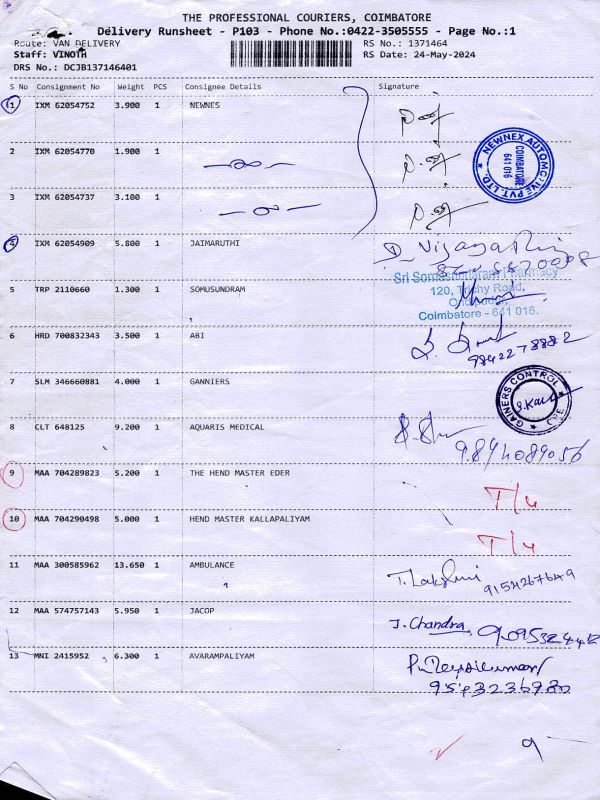 THE PROFESSIONAL COURIERS, COIMBATORE
Delivery Runsheet - P103 - Phone No.:0422-3505555 - Page No.:1
Route: VAN DELIVERY
RS No.: 1371464
Staff: VINOTH
RS Date: 24-May-2024
DRS No.: DCJB137146401
S No Consignment No Weight PCS Consignee Details Signature
1 IXM 62054752 3.900 1 NEWNES
2 IXM 62054770 1.900 1
NEWNEX AUTOMOTIVE PVT. LTD.
COIMBATORE
641 016
3 IXM 62054737 3.100 1
4 IXM 62054909 5.800 1 JAIMARUTHI
Sri Somasundaram Pharmacy
5 TRP 2110660 1.300 1 SOMUSUNDRAM
120, Trichy Road,
Coimbatore - 641 016.
6 HRD 700832343 3.500 1 ABI
9842278882
7 SLM 346660881 4.000 1 GANNIERS
GAINERS CONTROL
8 CLT 648125 9.200 1 AQUARIS MEDICAL
9894089056
9 MAA 704289823 5.200 1 THE HEND MASTER EDER
T/4
10 MAA 704290498 5.000 1 HEND MASTER KALLAPALIYAM
T/4
11 MAA 300585962 13.650 1 AMBULANCE T. Lakshmi
9154267649
12 MAA 574757143 5.950 1 JACOP J. Chandra
13 MNI 2415952 6.300 1 AVARAMPALIYAM